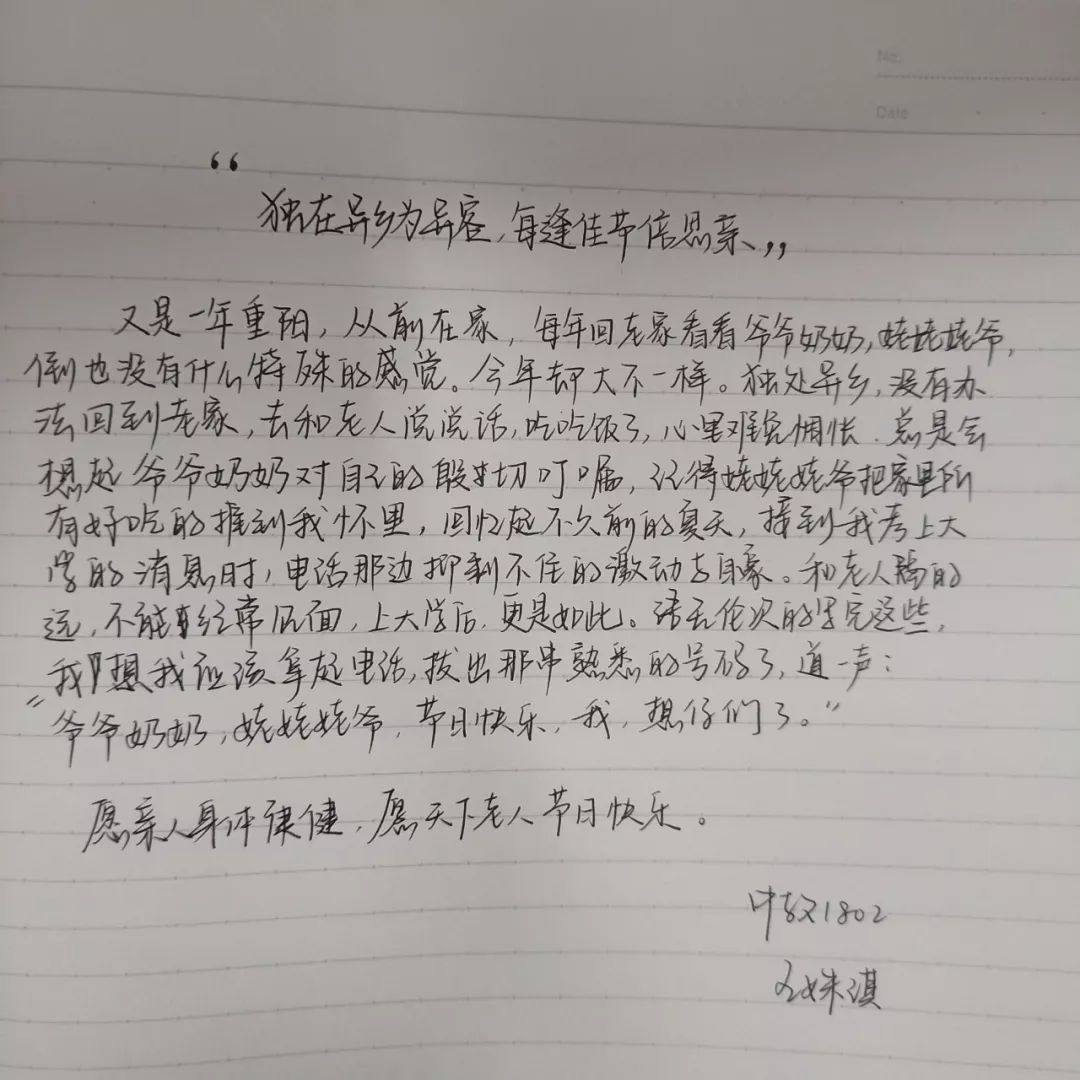 No:
Date
“
独在异乡为异客,每逢佳节倍思亲,,
又是一年重阳,从前在家,每年回老家看看爷爷奶奶,姥姥姥爷,
倒也没有什么特殊的感觉。今年却大不一样。独处异乡,没有办
法回到老家,去和老人说说话,吃吃饭了,心里难免惆怅.总是会
想起爷爷奶奶对自己的殷切叮嘱,记得姥姥姥爷把家里所
有好吃的推到我怀里,回忆起不久前的夏天,接到我考上大
学的消息时,电话那边抑制不住的激动与自豪。和老人隔的
远,不能经常见面,上大学后,更是如此。语无伦次的写完这些,
我想我应该拿起电话,拨出那串熟悉的号码了,道一声:
“爷爷奶奶,姥姥姥爷,节日快乐,我,想你们了。”
愿亲人身体康健,愿天下老人节日快乐。
中文1802
姝淇